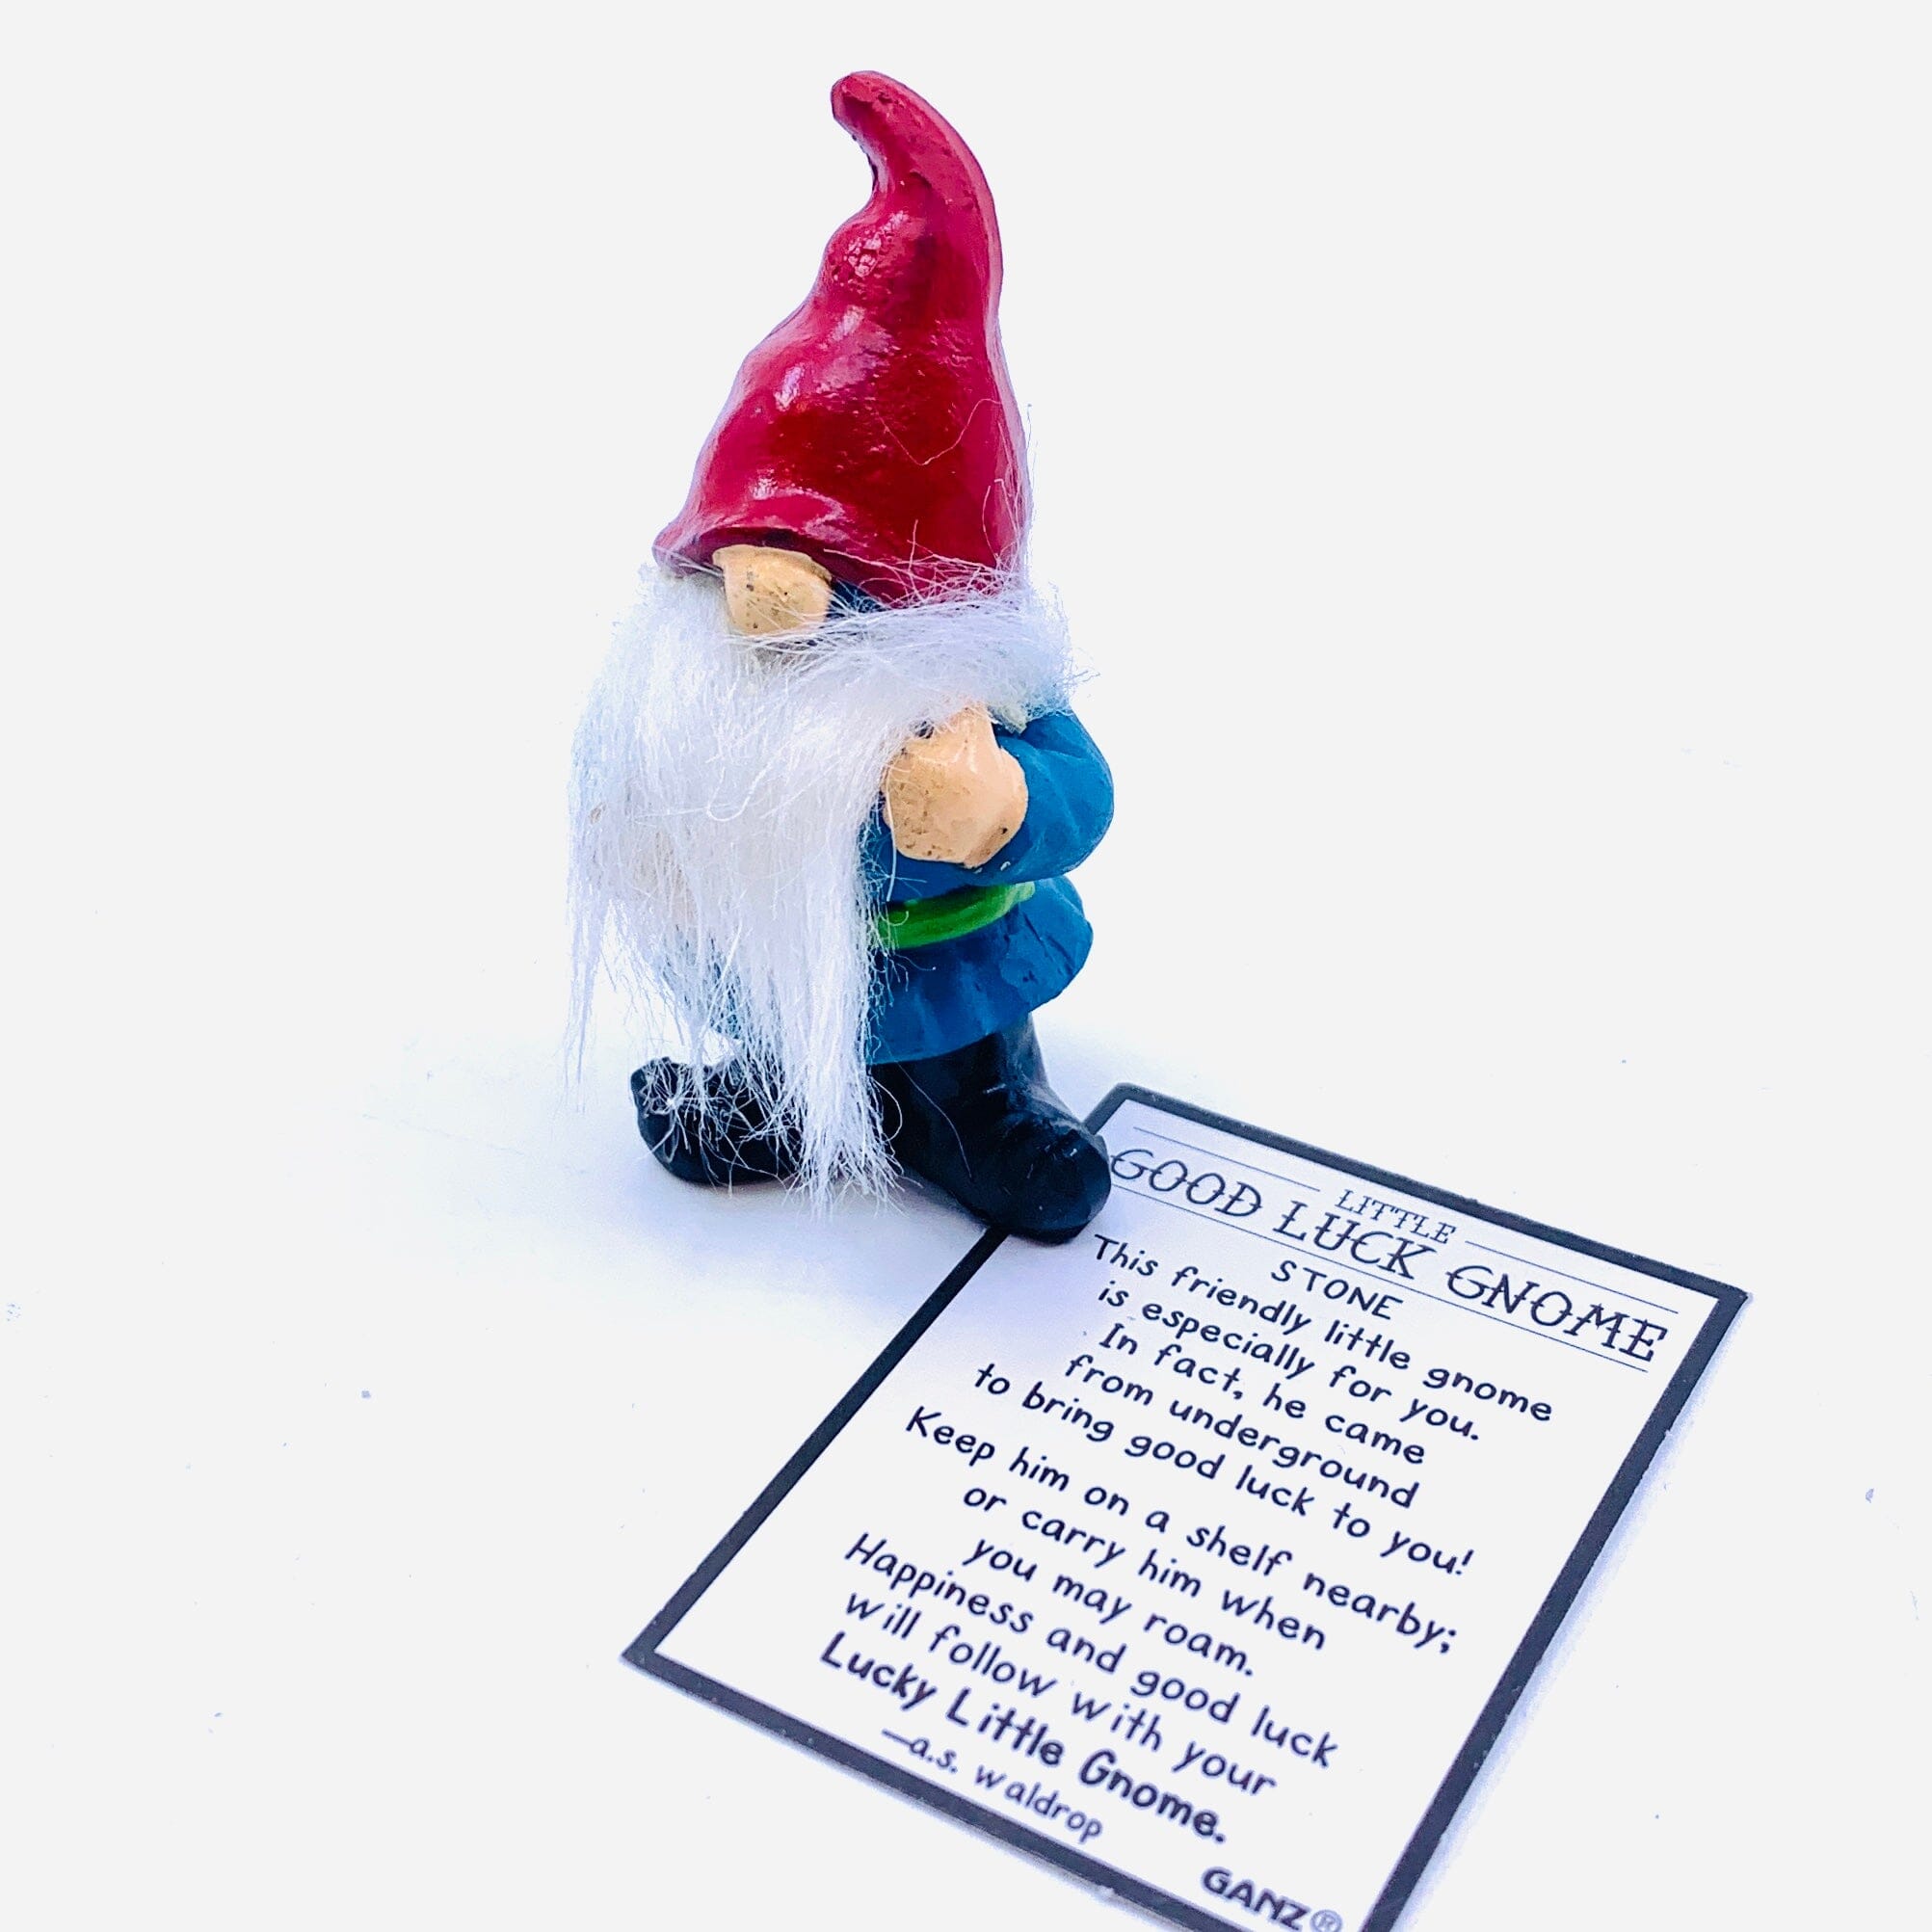 LITTLE
GOOD LUCK GNOME
STONE
This friendly little gnome
is especially for you.
In fact, he came
from underground
to bring good luck to you!
Keep him on a shelf nearby;
or carry him when
you may roam.
Happiness and good luck
will follow with your
Lucky Little Gnome.
—a.s. waldrop
GANZ®